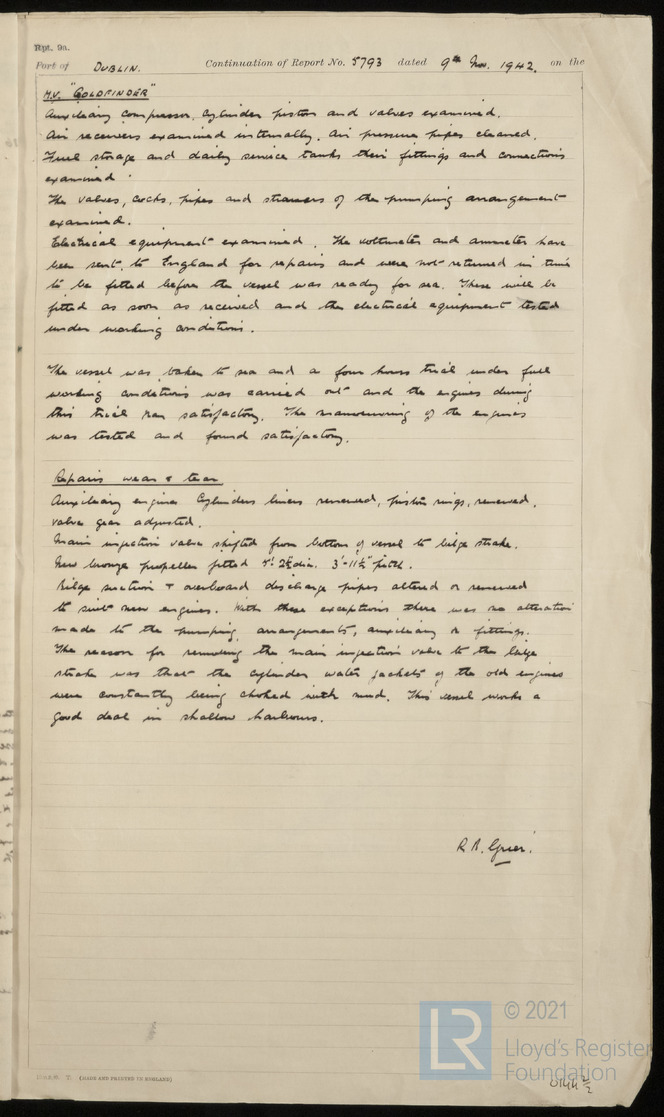 Rpt. 9a.
Port of DUBLIN. Continuation of Report No. 5793 dated 9th Nov. 1942. on the
M.V. "GOLDFINDER"
Auxiliary compressor, cylinder piston and valves examined.
Air receivers examined internally. Air pressure pipes cleaned.
Fuel storage and daily service tanks their fittings and connections
examined.
The valves, cocks, pipes and strainers of the pumping arrangement
examined.
Electrical equipment examined. The voltmeter and ammeter have
been sent to England for repairs and were not returned in time
to be fitted before the vessel was ready for sea. These will be
fitted as soon as received and the electrical equipment tested
under working conditions.
The vessel was taken to sea and a four hours trial under full
working conditions was carried out and the engines during
this trial ran satisfactory. The manoeuvring of the engines
was tested and found satisfactory.
Repairs wear & tear
Auxiliary engine Cylinders liners renewed, piston rings, renewed,
valve gear adjusted.
Main injection valve shifted from bottom of vessel to bilge strake.
New bronze propeller fitted dia. 3'-11½" pitch.
Bilge suction & overboard discharge pipes altered or renewed
to suit new engines. With these exceptions there was no alteration
made to the pumping arrangements, auxiliary or fittings.
The reason for removing the main injection valve to the bilge
strake was that the cylinder water jackets of the old engines
were constantly being choked with mud. This vessel works a
good deal in shallow harbours.
R. A. Grier.
T. (MADE AND PRINTED IN ENGLAND)
LR
© 2021
Lloyd's Register
Foundation
0144 2/2